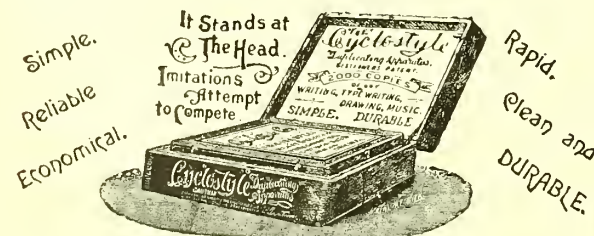 Simple.
Reliable
Economical.
It Stands at
The Head.
Imitations
Attempt
to Compete.
The
Cyclostyle
Duplicating Apparatus.
2000 COPIES
OF ANY
WRITING, TYPE WRITING,
DRAWING, MUSIC.
SIMPLE. DURABLE
Cyclostyle Duplicating
Apparatus
Rapid.
Clean and
DURABLE.